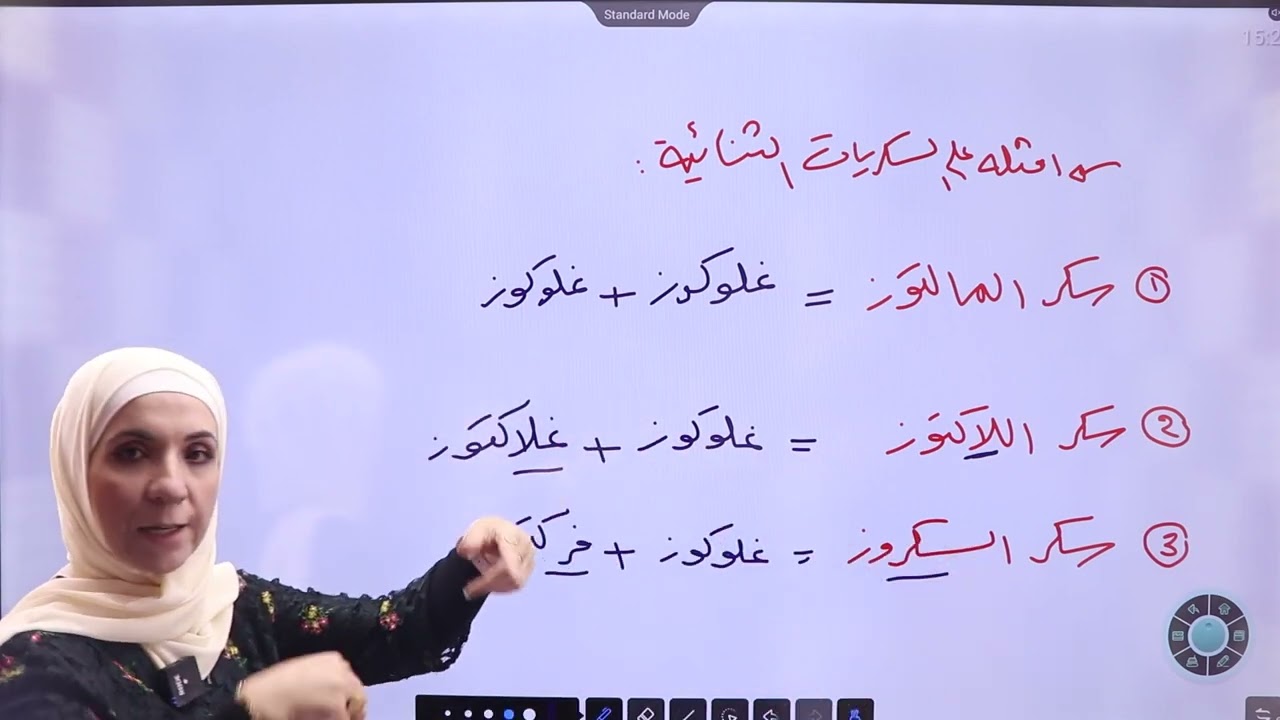 Standard Mode
15:2
امثله على السكريات الثنائية :
① سكر المالتوز = غلوكوز + غلوكوز
② سكر اللاكتوز = غلوكوز + غلاكتوز
③ سكر السكروز = غلوكوز + فرك